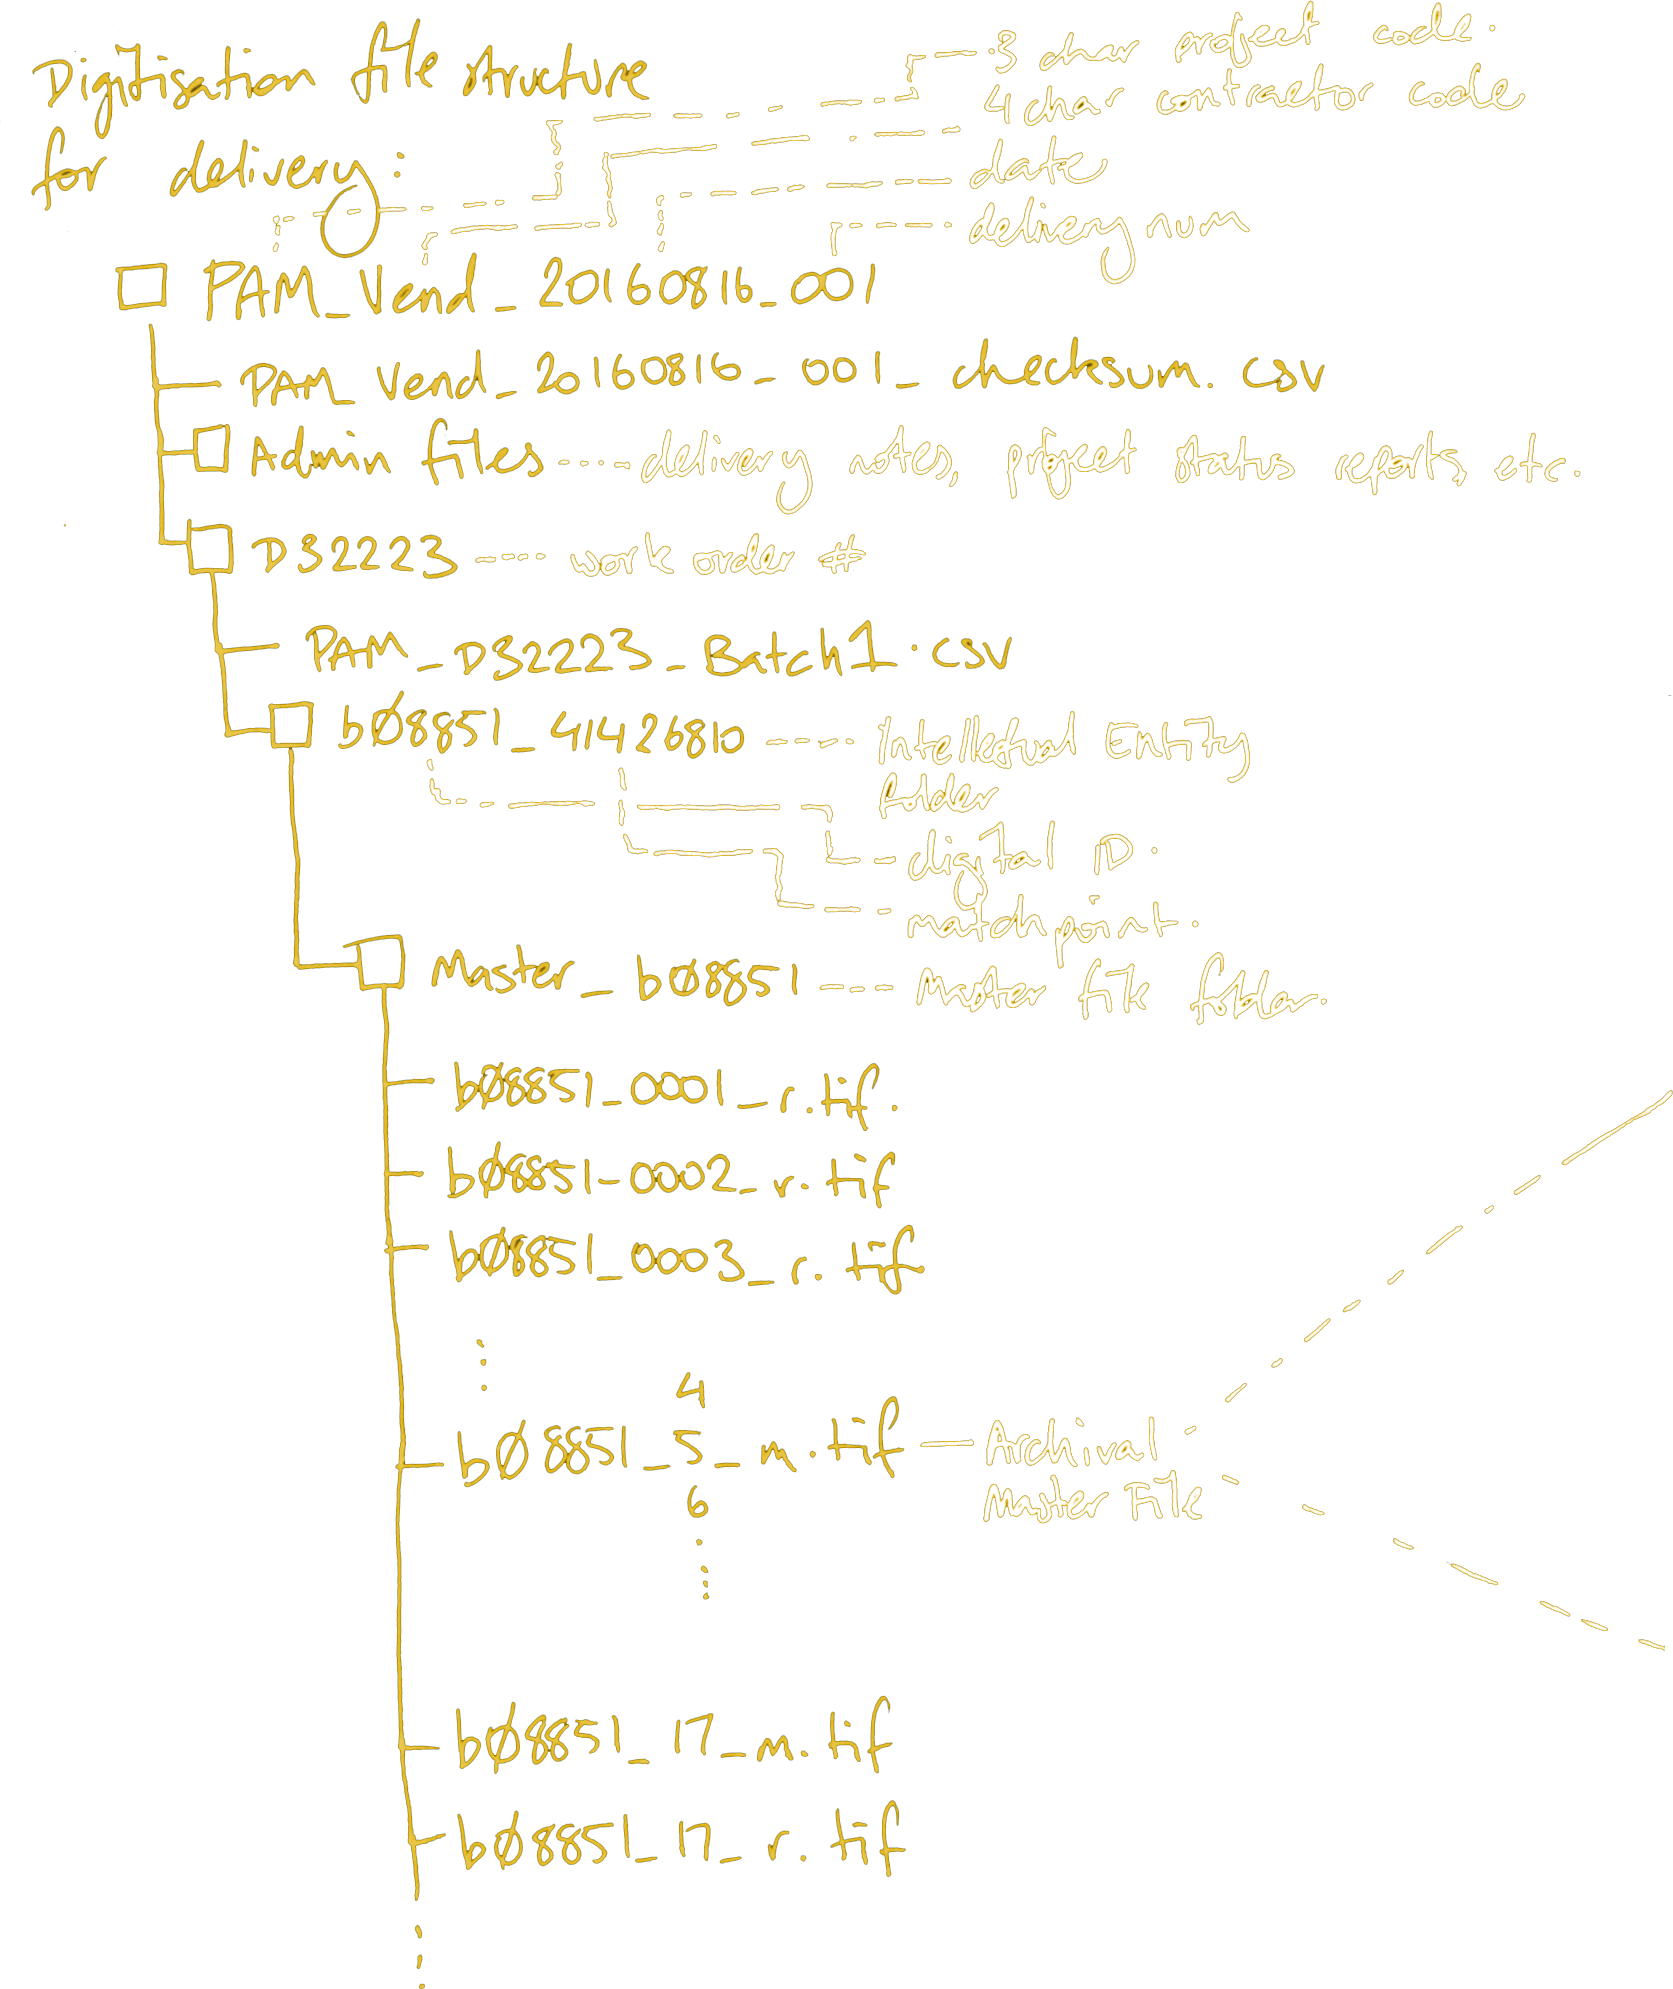 Digitisation file structure
for delivery:
3 char project code.
4 char contractor code
date
delivery num
PAM_Vend_20160816_001
PAM_Vend_20160816_001_checksum.csv
Admin files ---- delivery notes, project status reports, etc.
D32223 ---- work order #
PAM_D32223_Batch1.csv
bØ8851_41426810 ---- Intellectual Entity
folder
digital ID.
matchpoint.
Master_bØ8851 --- Master file folder.
bØ8851_0001_r.tif.
bØ8851_0002_r.tif
bØ8851_0003_r.tif
4
bØ8851_5_m.tif — Archival
Master File
6
bØ8851_17_m.tif
bØ8851_17_r.tif